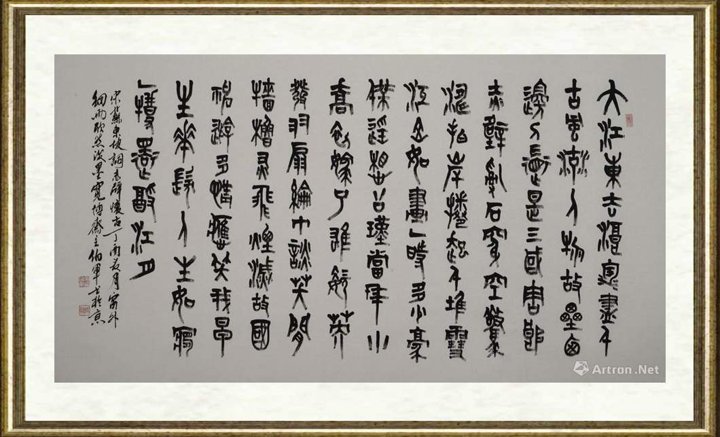 大江東去浪淘盡千
古風流人物故壘西
邊人道是三國周郎
赤壁亂石穿空驚
濤拍岸捲起千堆雪
江山如畫一時多少豪
傑遥想公瑾當年小
喬初嫁了雄姿英
發羽扇綸巾談笑間
檣櫓灰飛煙滅故國
神遊多情應笑我早
生華髮人生如夢
一樽還酹江月
宋蘇東坡詞赤壁懷古丁酉夏月窗外
細雨墨寬博齋主伯軍書於京
Artron.Net